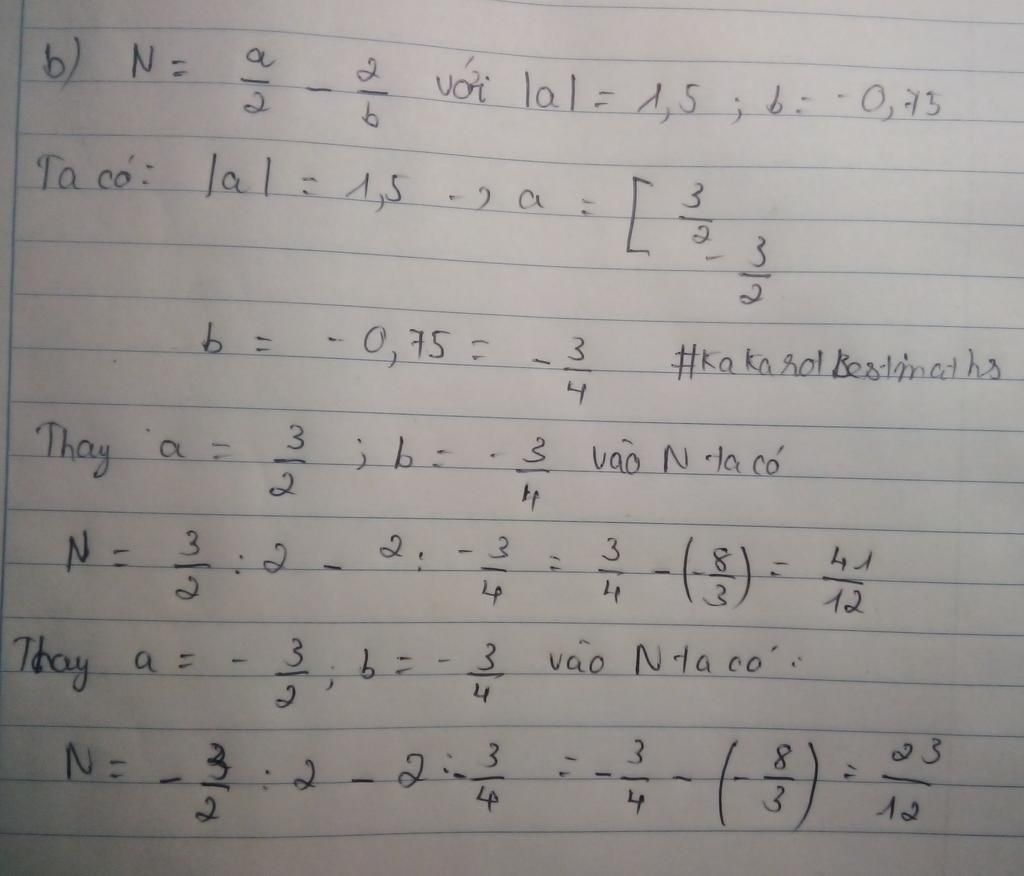 b) N = a/2 - 2/b với |a| = 1,5 ; b = -0,75
Ta có: |a| = 1,5 -> a = [ 3/2
- 3/2
b = -0,75 = - 3/4 #KakarotBestmaths
Thay a = 3/2 ; b = - 3/4 vào N ta có
N = 3/2 : 2 - 2 : - 3/4 = 3/4 - (- 8/3) = 41/12
Thay a = - 3/2 ; b = - 3/4 vào N ta có :
N = - 3/2 : 2 - 2 : - 3/4 = - 3/4 - (- 8/3) = 23/12